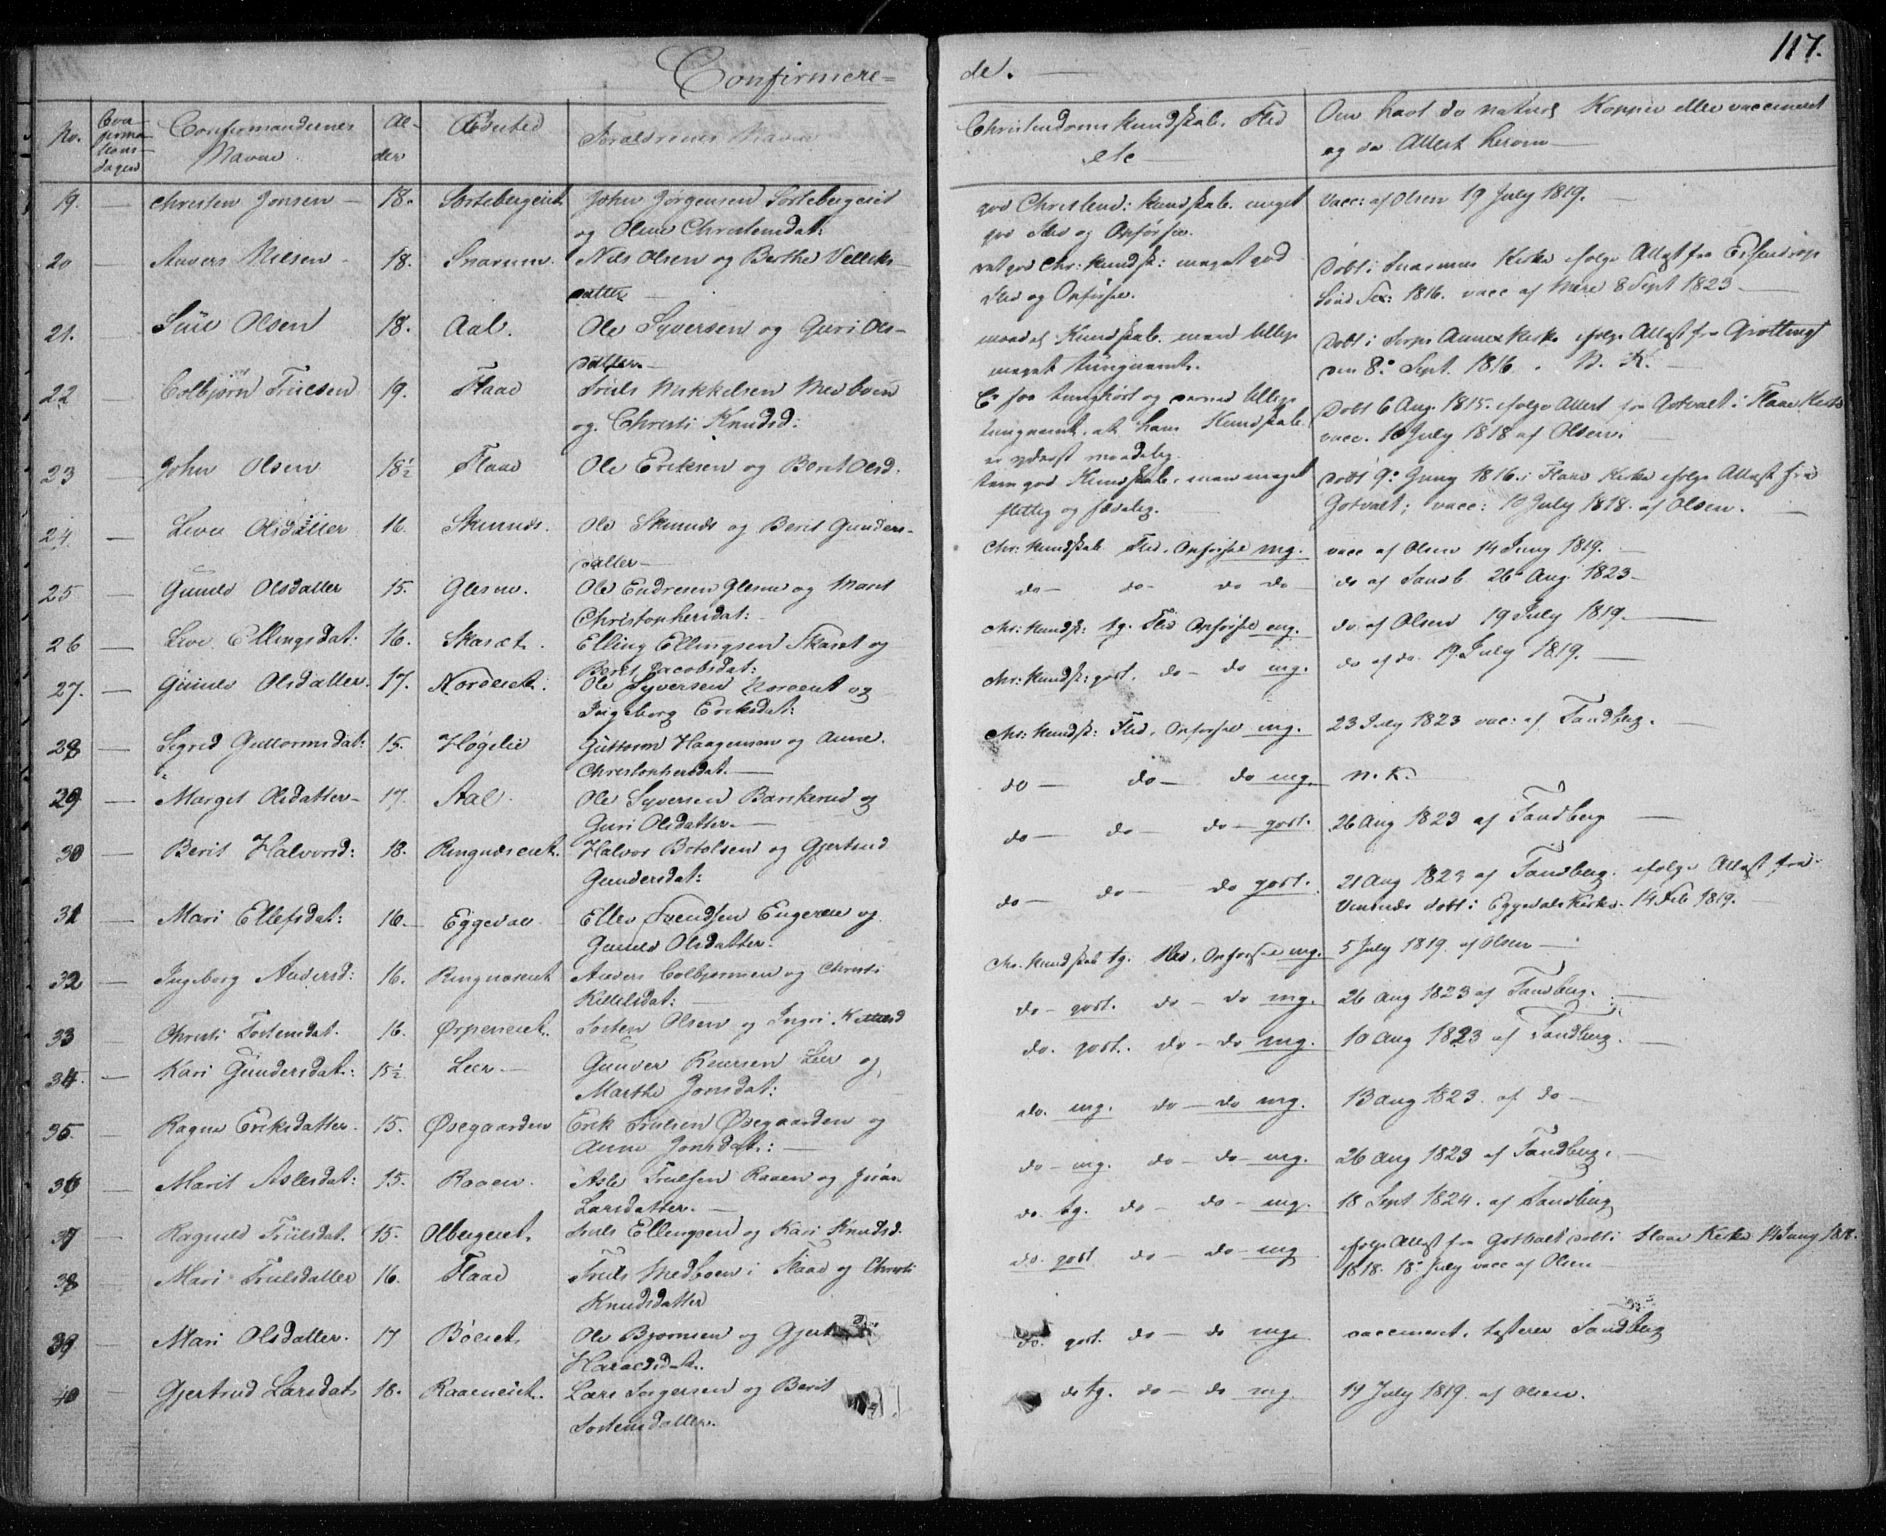 117.
Confirmere=
de.
No.
Confirmandernes
Navne
Al-
der
Forældrenes Navne
Christendoms Kundskab. Flid
etc
Om havt de naturl Kopper eller vaccineret
og da Attest herom
19. Christen Jonsen 18. Sortebergeiet John Jørgensen Sortebergeiet
og Olene Christensdat:
god Christend: Kundskab. meget
god Flid og Opførsel.
vacc: af Olsen 19 July 1819.
20 Anders Nilsen 18. Snarum. Nils Olsen og Berthe
datter
god Chr: Kundsk: meget god
Flid og Opførsel.
døbt i Snarums Kirke ifølge Attest fra
1816. vacc af 8 Sept 1823
21. Olsen 18. Aal. Ole Syversen og Guri Ols-
datter
maadel Kundskab. men tillige
meget tungnemt.
døbt i Torpe Annex Kirke ifølge Attest fra
den 8. Sept. 1816. N. K.
22 Colbjørn Trulsen 19. Flaae Truls Mikkelsen Medboen
og Christi Knudsd:
Er saa tunghørt og derved tillige
tungnemt, at hans Kundskab
er yderst maadelig.
døbt 6 Aug. 1815. ifølge Attest fra Gotvalt i Flaae Kirke
vacc. 10 July 1818 af Olsen.
23 John Olsen 18½ Flaae Ole Eriksen og Berit Olsd.
tem god Kundskab, men meget
flittig og
døbt 9. Juny 1816. i Flaae Kirke ifølge Attest fra
Gotvalt; vacc: 10 July 1818. af Olsen.
24. Live Olsdatter 16. Skinnds. Ole Skinnds og Berit Gunders-
datter
Chr: Kundskab Flid, Opførsel mg.
vacc af Olsen 14 Juny 1819.
25 Guneld Olsdatter 15. Glesne. Ole Endresen Glesne og Marit
Christophersdat:
do do do do
do af Sandb 26 Aug. 1823
26 Live Ellingsdat: 16. Skaret. Elling Ellingsen Skaret og
Berit Jacobsdat:
Chr: Kundsk: tg. Flid Opførsel mg.
do af Olsen 19 July 1819.
27. Guneld Olsdatter. 17. Nordeiet. Ole Syversen Nordeiet og
Ingeborg Eriksdat:
Chr: Kundsk: godt. do do mg.
do af do. 19 July 1819.
28 Sigrid Guttormsdat: 15. Høgelie Guttorm Haagensen og Anne.
Christophersdat.
Chr: Kundsk: Flid, Opførsel mg.
23 July 1823 vac: af Sandberg.
29 Marget Olsdatter 17. Aal. Ole Syversen Barskrud og
Guri Olsdatter.
do do do mg.
N. K.
30 Berit Halvorsd: 18. Ringnæseiet. Halvor Botolsen og Gjertrud
Gundersdat:
do do do godt.
26 Aug 1823 af Sandberg
31 Mari Ellefsdat: 16. Eggedal Ellef Svendsen Engerne og
Guneld Olsdatter.
do do do godt.
21 Aug 1823 af Sandberg. ifølge Attest fra
døbt i Eggedals Kirke. 14 Feb 1819.
32 Ingeborg Andersd: 16. Ringnæseiet Anders Colbjørnsen og Christi
Killilsdat:
Chr. Kundskab tg. Flid, Opførsel mg.
5 July 1819. af Olsen
33 Christi Tostensdat. 16. Ørpeneiet. Tosten Olsen og Ingri
do godt. do do mg.
26 Aug 1823 af Sandberg.
34. Kari Gundersdat: 15½ Leer Gunder Reiersen Leer og,
Marthe Jonsdat:
do. godt. do do mg.
10 Aug 1823 af Sandberg.
35. Ragne Eriksdatter. 15. Øvegaarden Erik Trulsen Øvegaarden og
Anne Jonsdat:
do. mg. do do mg.
13 Aug 1823. af do
36 Marit Aslesdat: 15. Raaen. Asle Trulsen Raaen og
Larsdatter.
do mg. do do mg.
26 Aug 1823 af Sandberg.
37 Ragnild Trulsdat. 15. Olbergeiet. Truls Ellingsen og Kari Knudsd.
do. tg. do do mg.
18 Sept 1824. af Sandberg
38 Mari Trulsdatter 16. Flaae Truls Medboen i Flaae og Christi
Knudsdatter
do. godt do do mg
ifølge Attest fra Gotvalt døbt i Flaae Kirke 14 Juny 1818.
1818. 18 July vacc af Olsen
39 Mari Olsdatter. 17 Bøeiet. Ole Bjørnsen og
Haraldsdat.
do. godt. do do mg.
vaccineret, Sandberg
40 Gjertrud Larsdat. 18. Raaeneiet. Lars Torgersen og Berit
Tostensdatter.
do tg. do do mg.
19 July 1819. af Olsen.